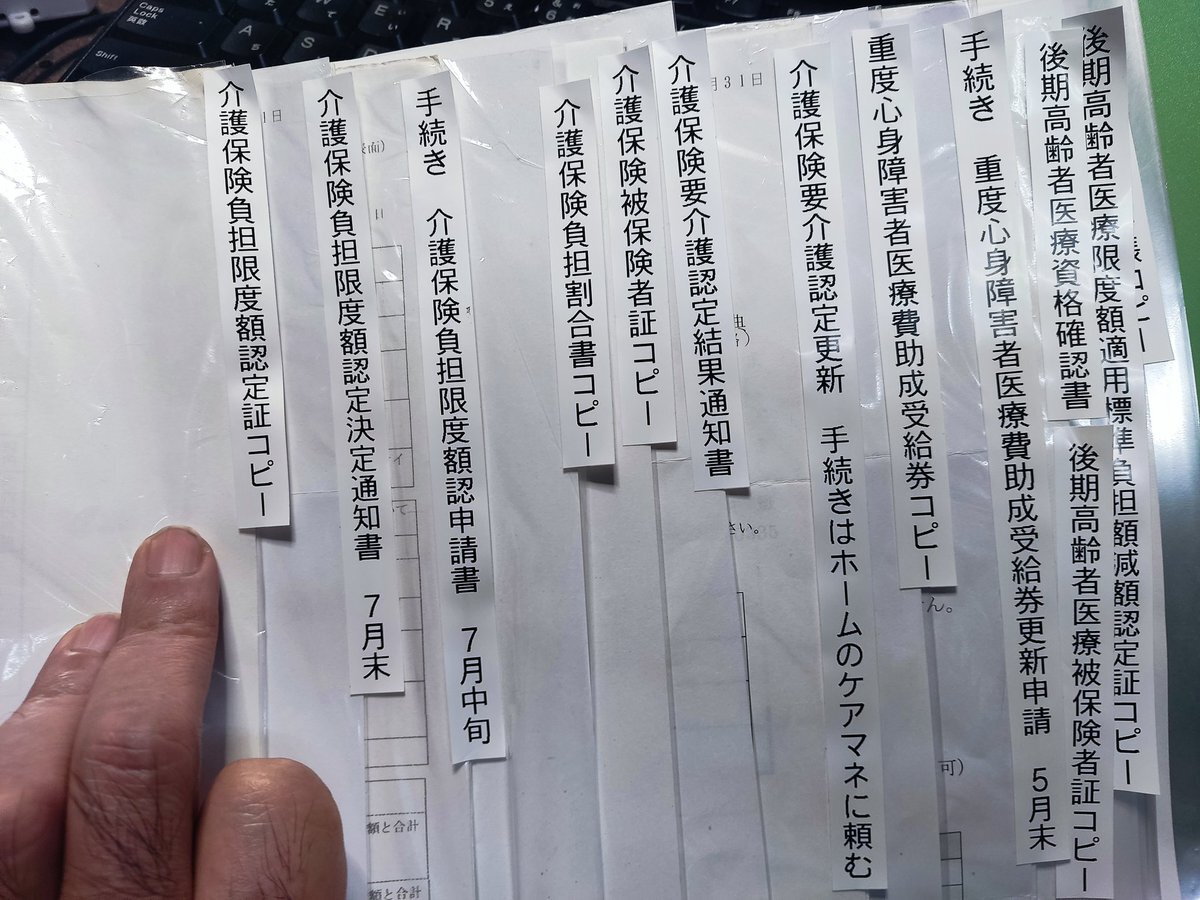 後期高齢者医療限度額適用標準負担額減額認定証コピー
後期高齢者医療資格確認書
後期高齢者医療被保険者証コピー
手続き 重度心身障害者医療費助成受給券更新申請 5月末
重度心身障害者医療費助成受給券コピー
介護保険要介護認定更新 手続きはホームのケアマネに頼む
介護保険要介護認定結果通知書
介護保険被保険者証コピー
介護保険負担割合書コピー
手続き 介護保険負担限度額認申請書 7月中旬
介護保険負担限度額認定決定通知書 7月末
介護保険負担限度額認定証コピー
月31日
1日
面)
日
さい。
ん。
可)
額と合計
額と合計
Caps Lock
英数
Shift
A
S
D
W
E
R